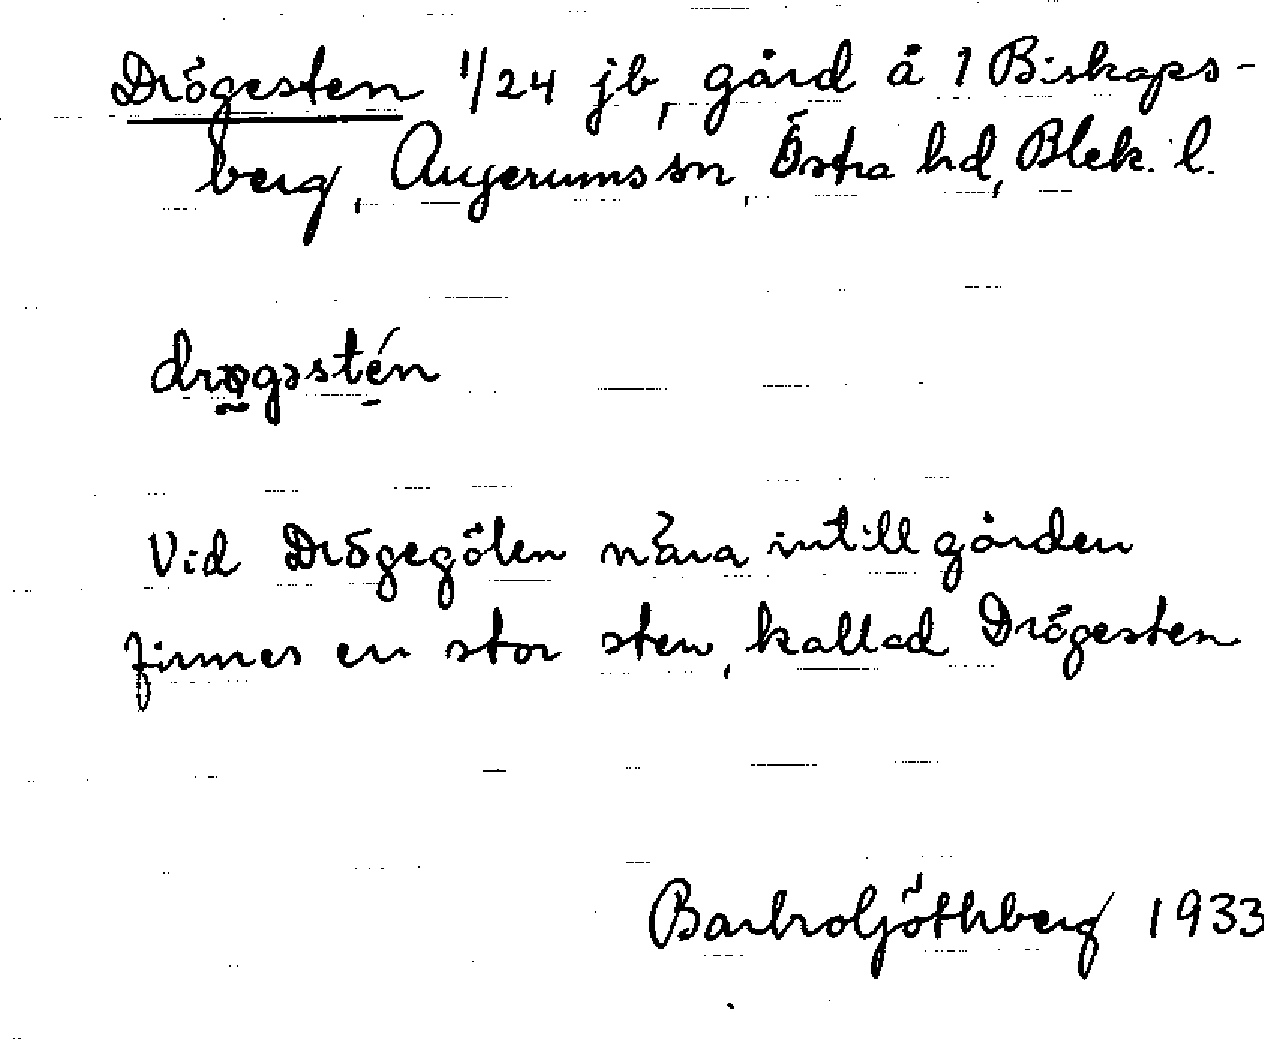 Drögesten 1/24 jb, gård å 1 Biskaps-
berg, Augerums sn, Östra hd, Blek. l.
drøgəstén
Vid Drögegölen nära intill gården
finnes en stor sten, kallad Drögesten
Barbro Göthberg 1933